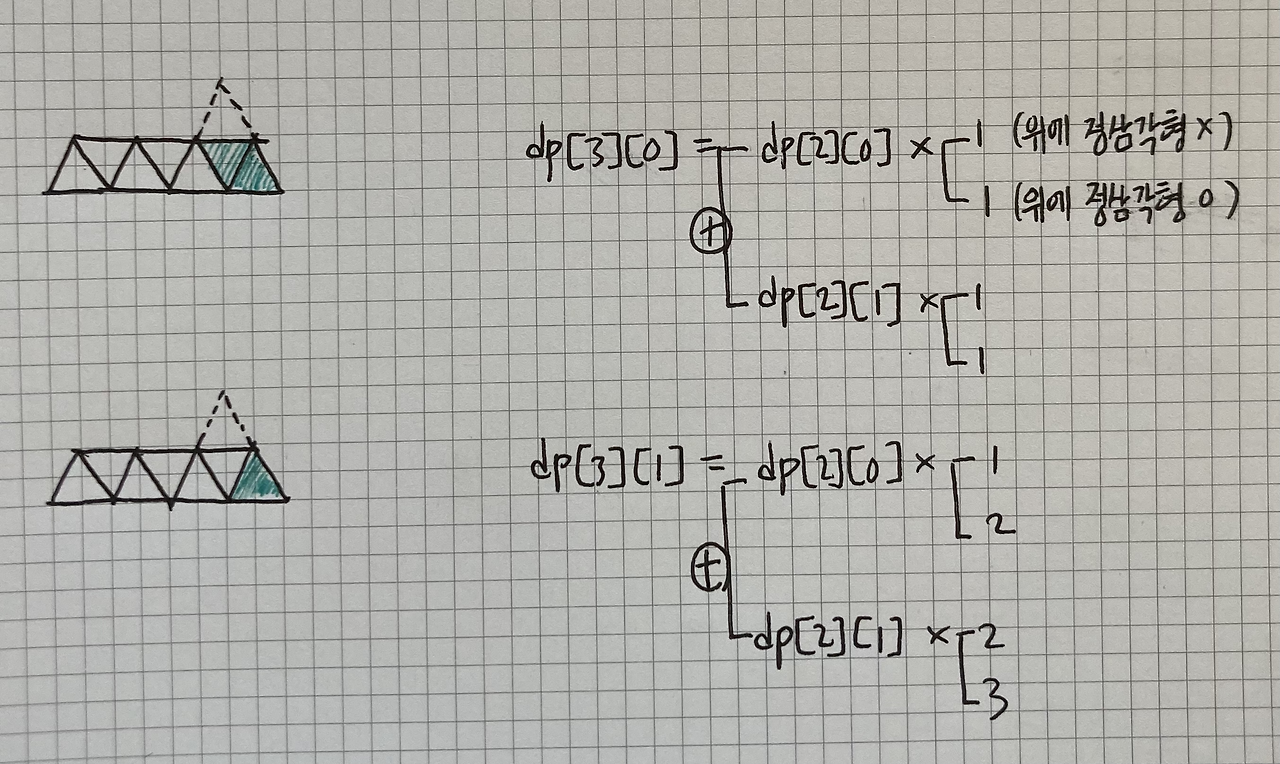 dp[3][0] = dp[2][0] × 1 (위에 정삼각형 x)
1 (위에 정삼각형 o)
+
dp[2][1] × 1
1
dp[3][1] = dp[2][0] × 1
2
+
dp[2][1] × 2
3